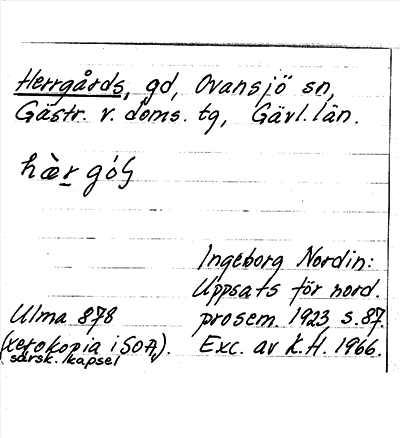 Herrgårds, gd, Ovansjö sn,
Gästr. v. doms. tg, Gävl. län.
Ingeborg Nordin:
Uppsats för nord.
Ulma 878 prosem. 1923, s. 87.
(xerokopia i SOA, Exc. av K.H. 1966.
särsk. kapsel).